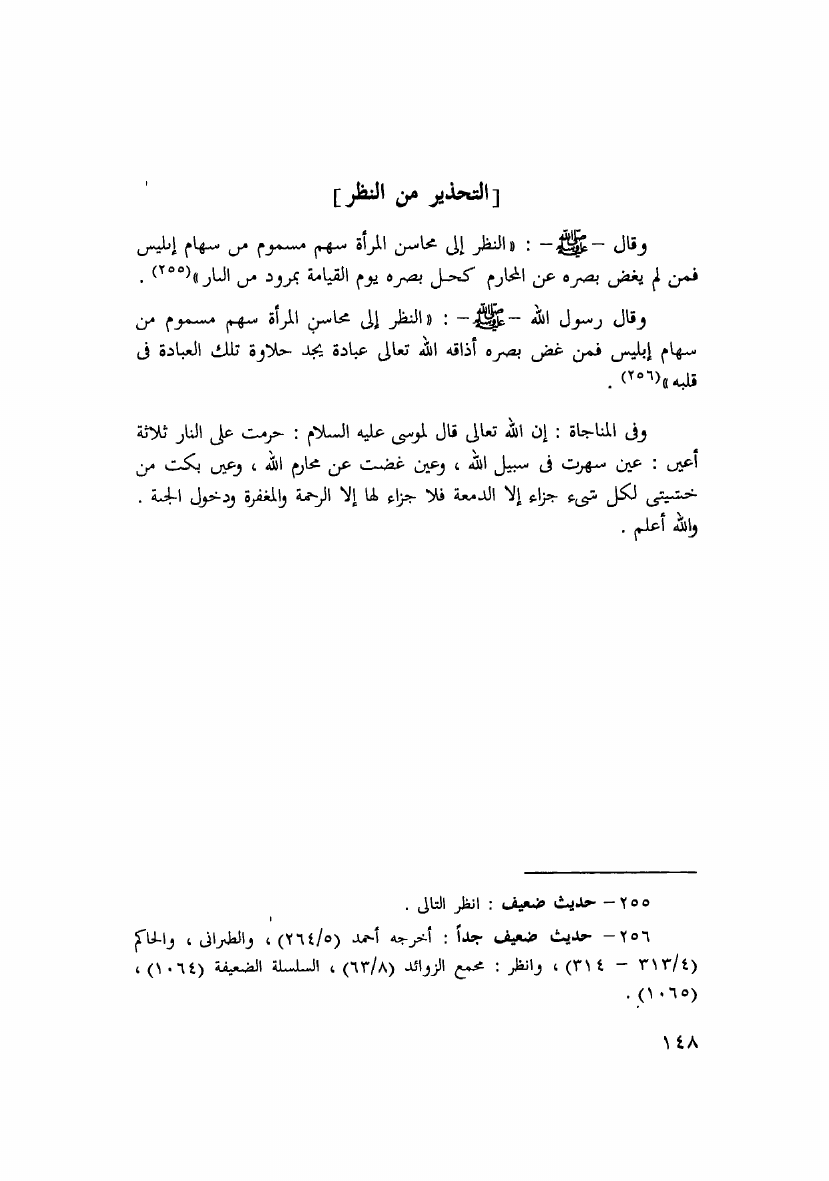 [التحذير من النظر]
وقال – ﷺ – : «النظر إلى محاسن المرأة سهم مسموم من سهام إبليس
فمن لم يغض بصره عن المحارم كحل بصره يوم القيامة بمرود من النار»(٢٥٥) .
وقال رسول الله – ﷺ – : «النظر إلى محاسن المرأة سهم مسموم من
سهام إبليس فمن غض بصره أذاقه الله تعالى عبادة يجد حلاوة تلك العبادة فى
قلبه»(٢٥٦) .
وفى المناجاة : إن الله تعالى قال لموسى عليه السلام : حرمت على النار ثلاثة
أعين : عين سهرت فى سبيل الله ، وعين غضت عن محارم الله ، وعين بكت من
خشيتى لكل شىء جزاء إلا الدمعة فلا جزاء لها إلا الرحمة والمغفرة ودخول الجنة .
والله أعلم .
٢٥٥ – حديث ضعيف : انظر التالى .
٢٥٦ – حديث ضعيف جداً : أخرجه أحمد (٢٦٤/٥) ، والطبرانى ، والحاكم
(٣١٣/٤ – ٣١٤) ، وانظر : مجمع الزوائد (٦٣/٨) ، السلسلة الضعيفة (١٠٦٤) ،
(١٠٦٥) .
١٤٨